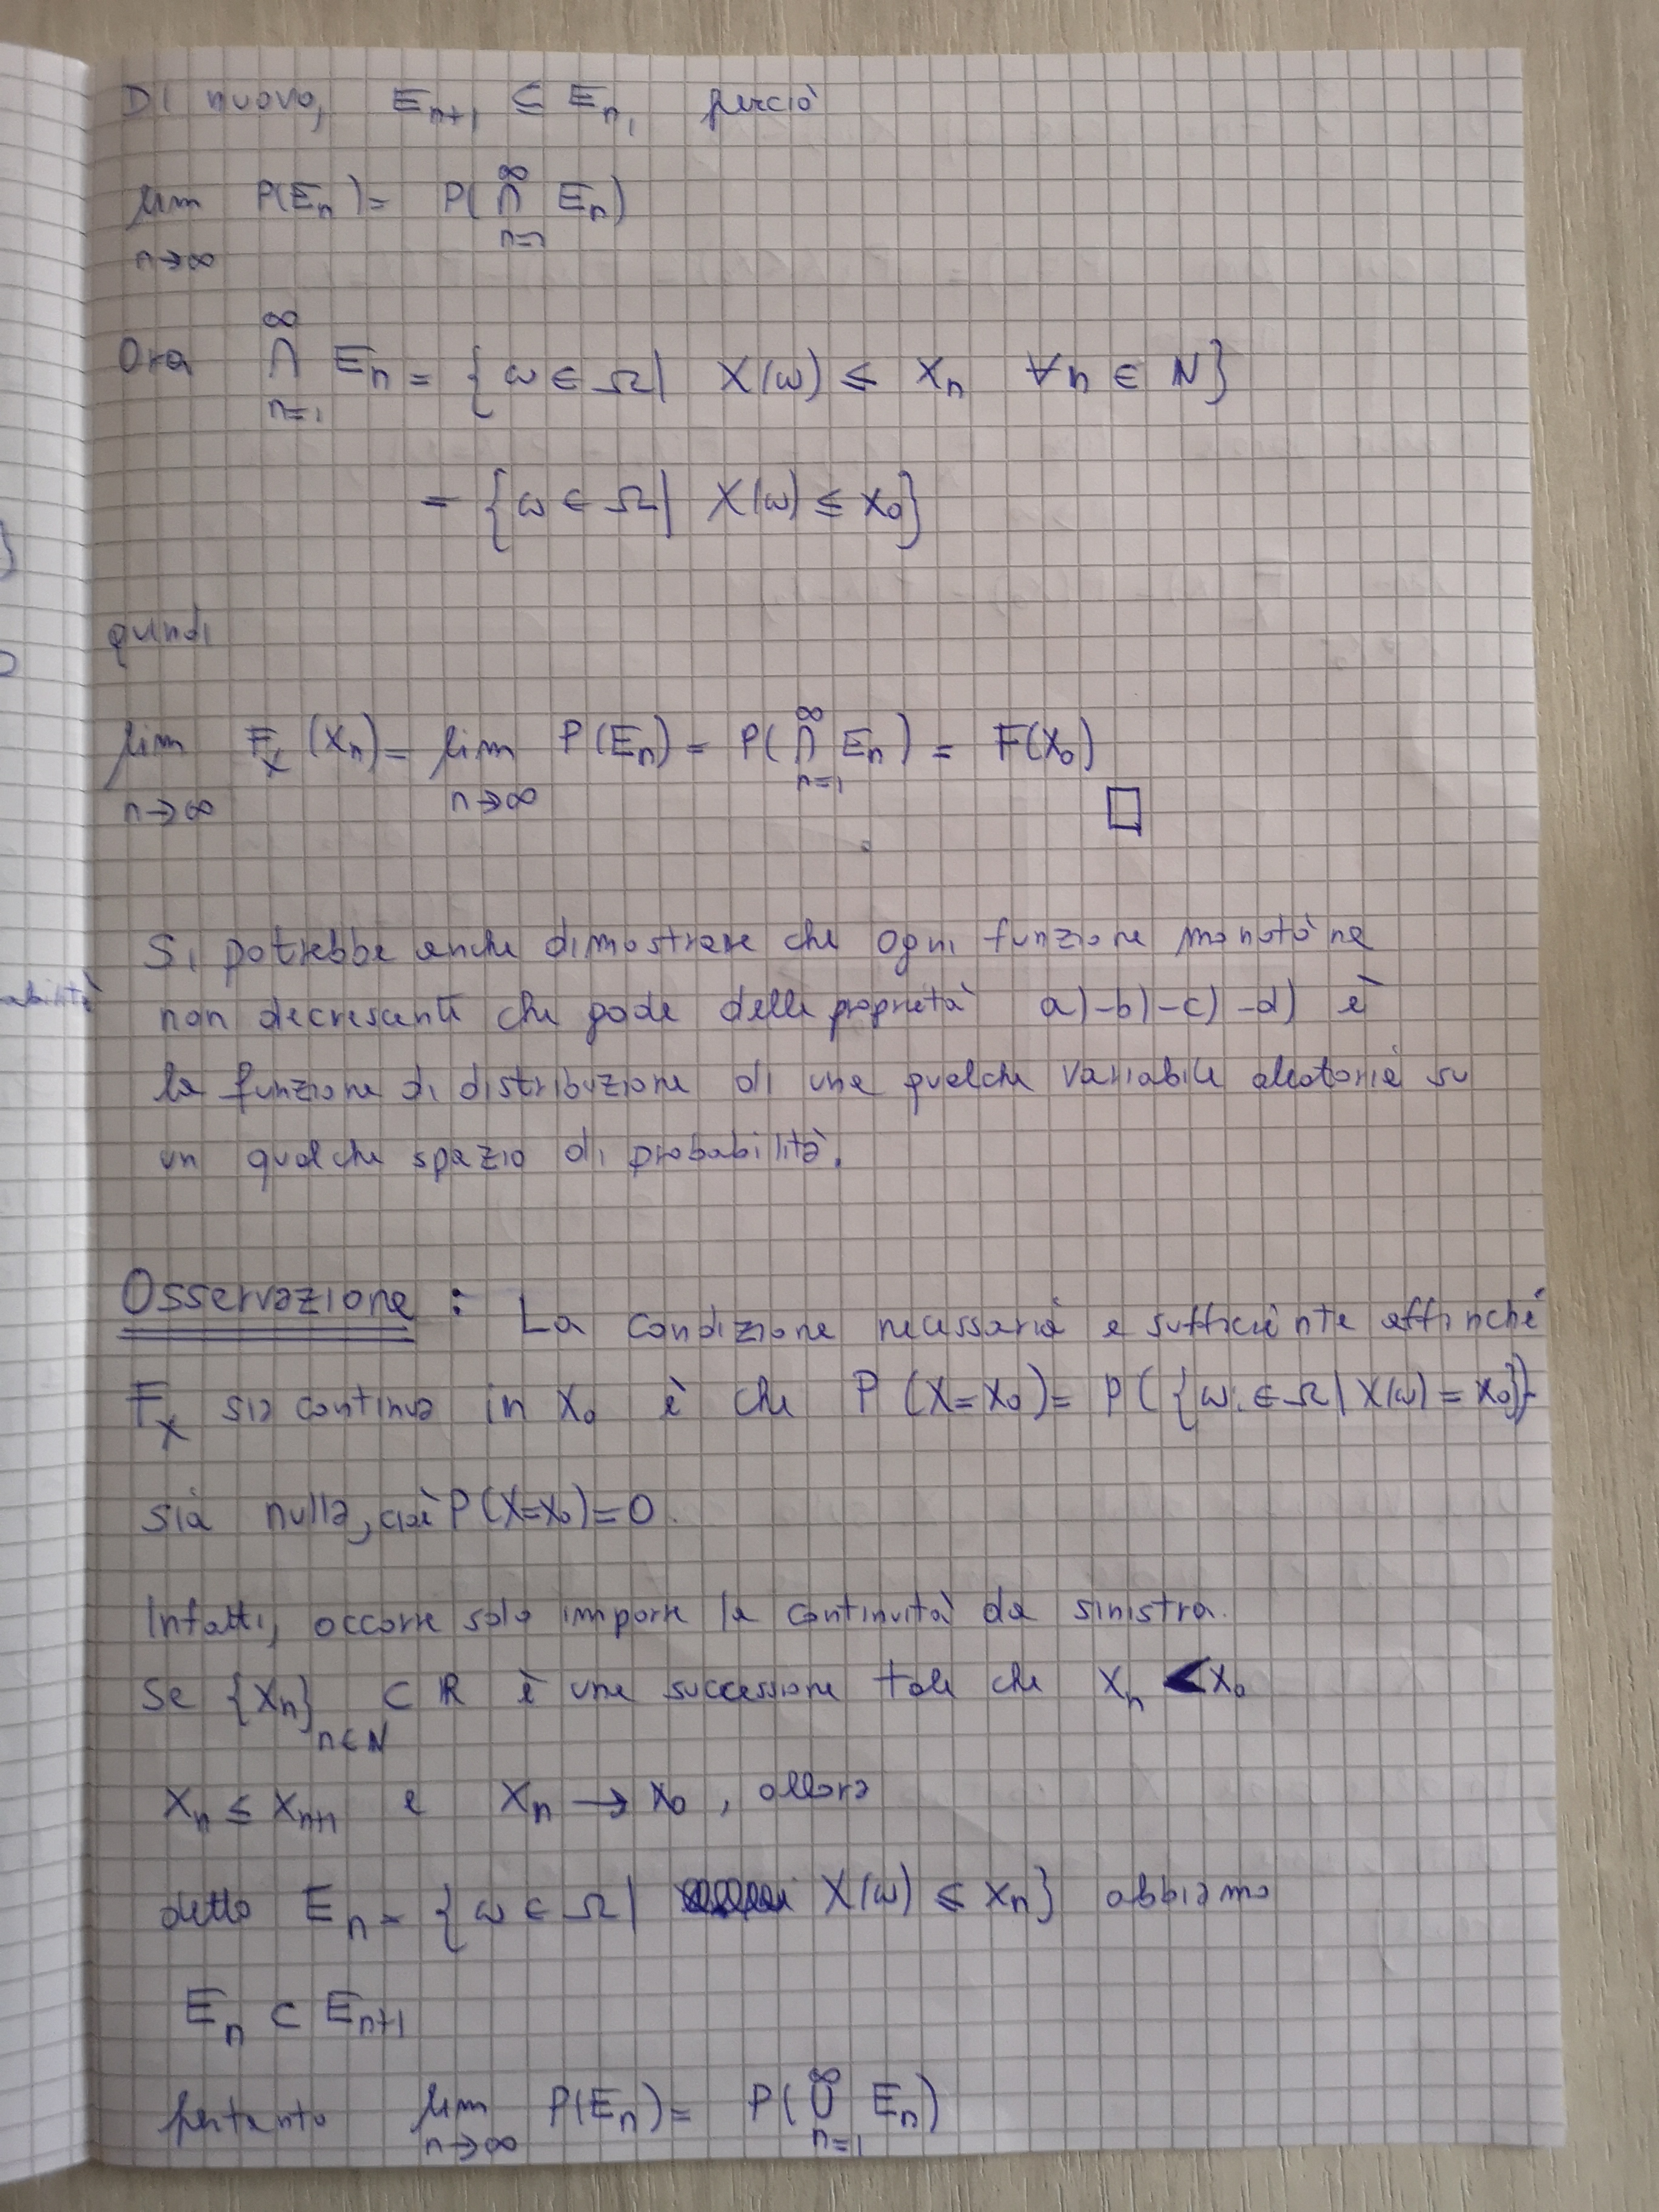 Di nuovo, E_{n+1} ⊆ E_n, perciò
lim_{n→∞} P(E_n) = P(⋂_{n=1}^{∞} E_n)
Ora ⋂_{n=1}^{∞} E_n = {ω ∈ Ω | X(ω) ≤ x_n ∀n ∈ N}
= {ω ∈ Ω | X(ω) ≤ x_0}
quindi
lim_{n→∞} F_X(x_n) = lim_{n→∞} P(E_n) = P(⋂_{n=1}^{∞} E_n) = F(x_0)
□
Si potrebbe anche dimostrare che ogni funzione monotòna
non decrescente che gode delle proprietà a)-b)-c)-d) è
la funzione di distribuzione di una qualche variabile aleatoria su
un qualche spazio di probabilità.
Osservazione : La condizione necessaria e sufficiente affinché
F_X sia continua in x_0 è che P(X=x_0) = P({ω ∈ Ω | X(ω) = x_0})
sia nulla, cioè P(X=x_0)=0.
Infatti, occorre solo imporre la continuità da sinistra.
Se {x_n}_{n∈N} ⊂ R è una successione tale che x_n < x_0
x_n ≤ x_{n+1} e x_n → x_0, allora
detto E_n = {ω ∈ Ω | X(ω) ≤ x_n} abbiamo
E_n ⊂ E_{n+1}
pertanto lim_{n→∞} P(E_n) = P(⋃_{n=1}^{∞} E_n)